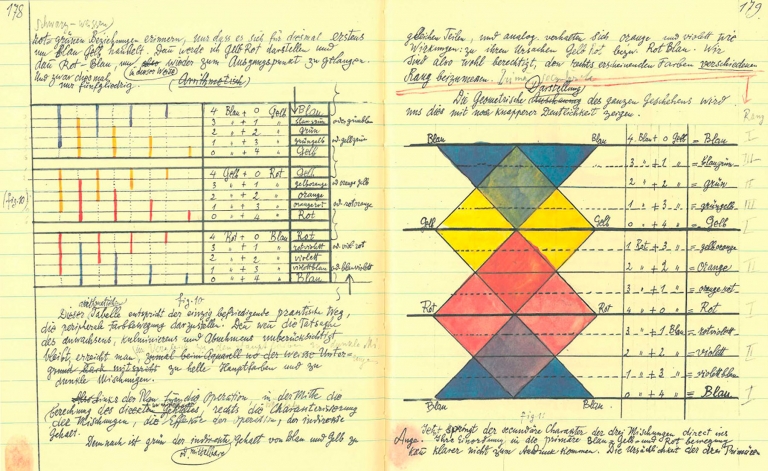 178
schwarz-weissen
rot-grünen Beziehungen erinnern, nur dass es sich für dreimal erstens
um Blau Gelb handelt. Dann werde ich Gelb Rot darstellen und
dann Rot-Blau, um wieder zum Ausgangspunkt zu gelangen.
in dieser Weise
Und zwar diesmal (Arithmetisch)
nur fünfgliedrig.
4 Blau + 0 Gelb Blau
3 " + 1 " blaugrün od grünblau
2 " + 2 " grün
1 " + 3 " grüngelb od gelbgrün
0 " + 4 " Gelb
4 Gelb + 0 Rot Gelb
3 " + 1 " gelborange od orangegelb
2 " + 2 " orange
1 " + 3 " orangerot od rotorange
0 " + 4 " Rot
4 Rot + 0 Blau Rot
3 " + 1 " rotviolett od viol-rot
2 " + 2 " violett
1 " + 3 " violettblau od blauviolett
0 " + 4 " Blau
(Fig. 10)
fig. 10
arithmetische
Dieser Tabelle entspricht der einzig befriedigende praktische Weg,
die peripherale Farbbewegung darzustellen. Denn wenn die Tatsache
des Anwachsens, Kulminierens und Abnehmens unberücksichtigt
bleibt, erreicht man, zumal beim Aquarell wo der weisse Unter-
grund stark mitspricht zu helle Hauptfarben und zu
dunkle Mischungen.
links der Plan für die Operation, in der Mitte die
Berechnung des directen Gehaltes, rechts die Characterisierung
der Mischungen, die Effekte der Operation, der indirecte
Gehalt.
Demnach ist grün der indirecte Gehalt von Blau und Gelb zu
179.
gleichen Teilen, und analog verhalten sich orange und violett wie
Wirkungen zu ihren Ursachen Gelb Rot bezw. Rot Blau. Wir
sind also wohl berechtigt, den rechts erscheinenden Farben verschiedenen
Rang beizumessen.
Darstellung
Die Geometrische des ganzen Geschehens wird
uns dies mit noch knapperer Deutlichkeit zeigen.
Rang
Blau Blau 4 Blau + 0 Gelb = Blau I
3 " + 1 " = blaugrün III
2 " + 2 " = grün II
1 " + 3 " = grüngelb III
Gelb Gelb 0 " + 4 " = Gelb I
1 Rot + 3 " = gelborange
2 " + 2 " = Orange II
3 " + 1 " = orange-rot
Rot Rot 4 " + 0 " = Rot I
3 " + 1 Blau = rotviolett
2 " + 2 " = violett II
1 " + 3 " = violettblau
0 " + 4 " = Blau I
Blau Blau
Fig. 11
Jetzt springt der secundäre Character der drei Mischungen direct ins
Auge. Ihre Einordnung in die primäre Blau-Gelb- und Rot bewegung
kann klarer nicht zum Ausdruck kommen. Die Ursächlichkeit der drei Primären